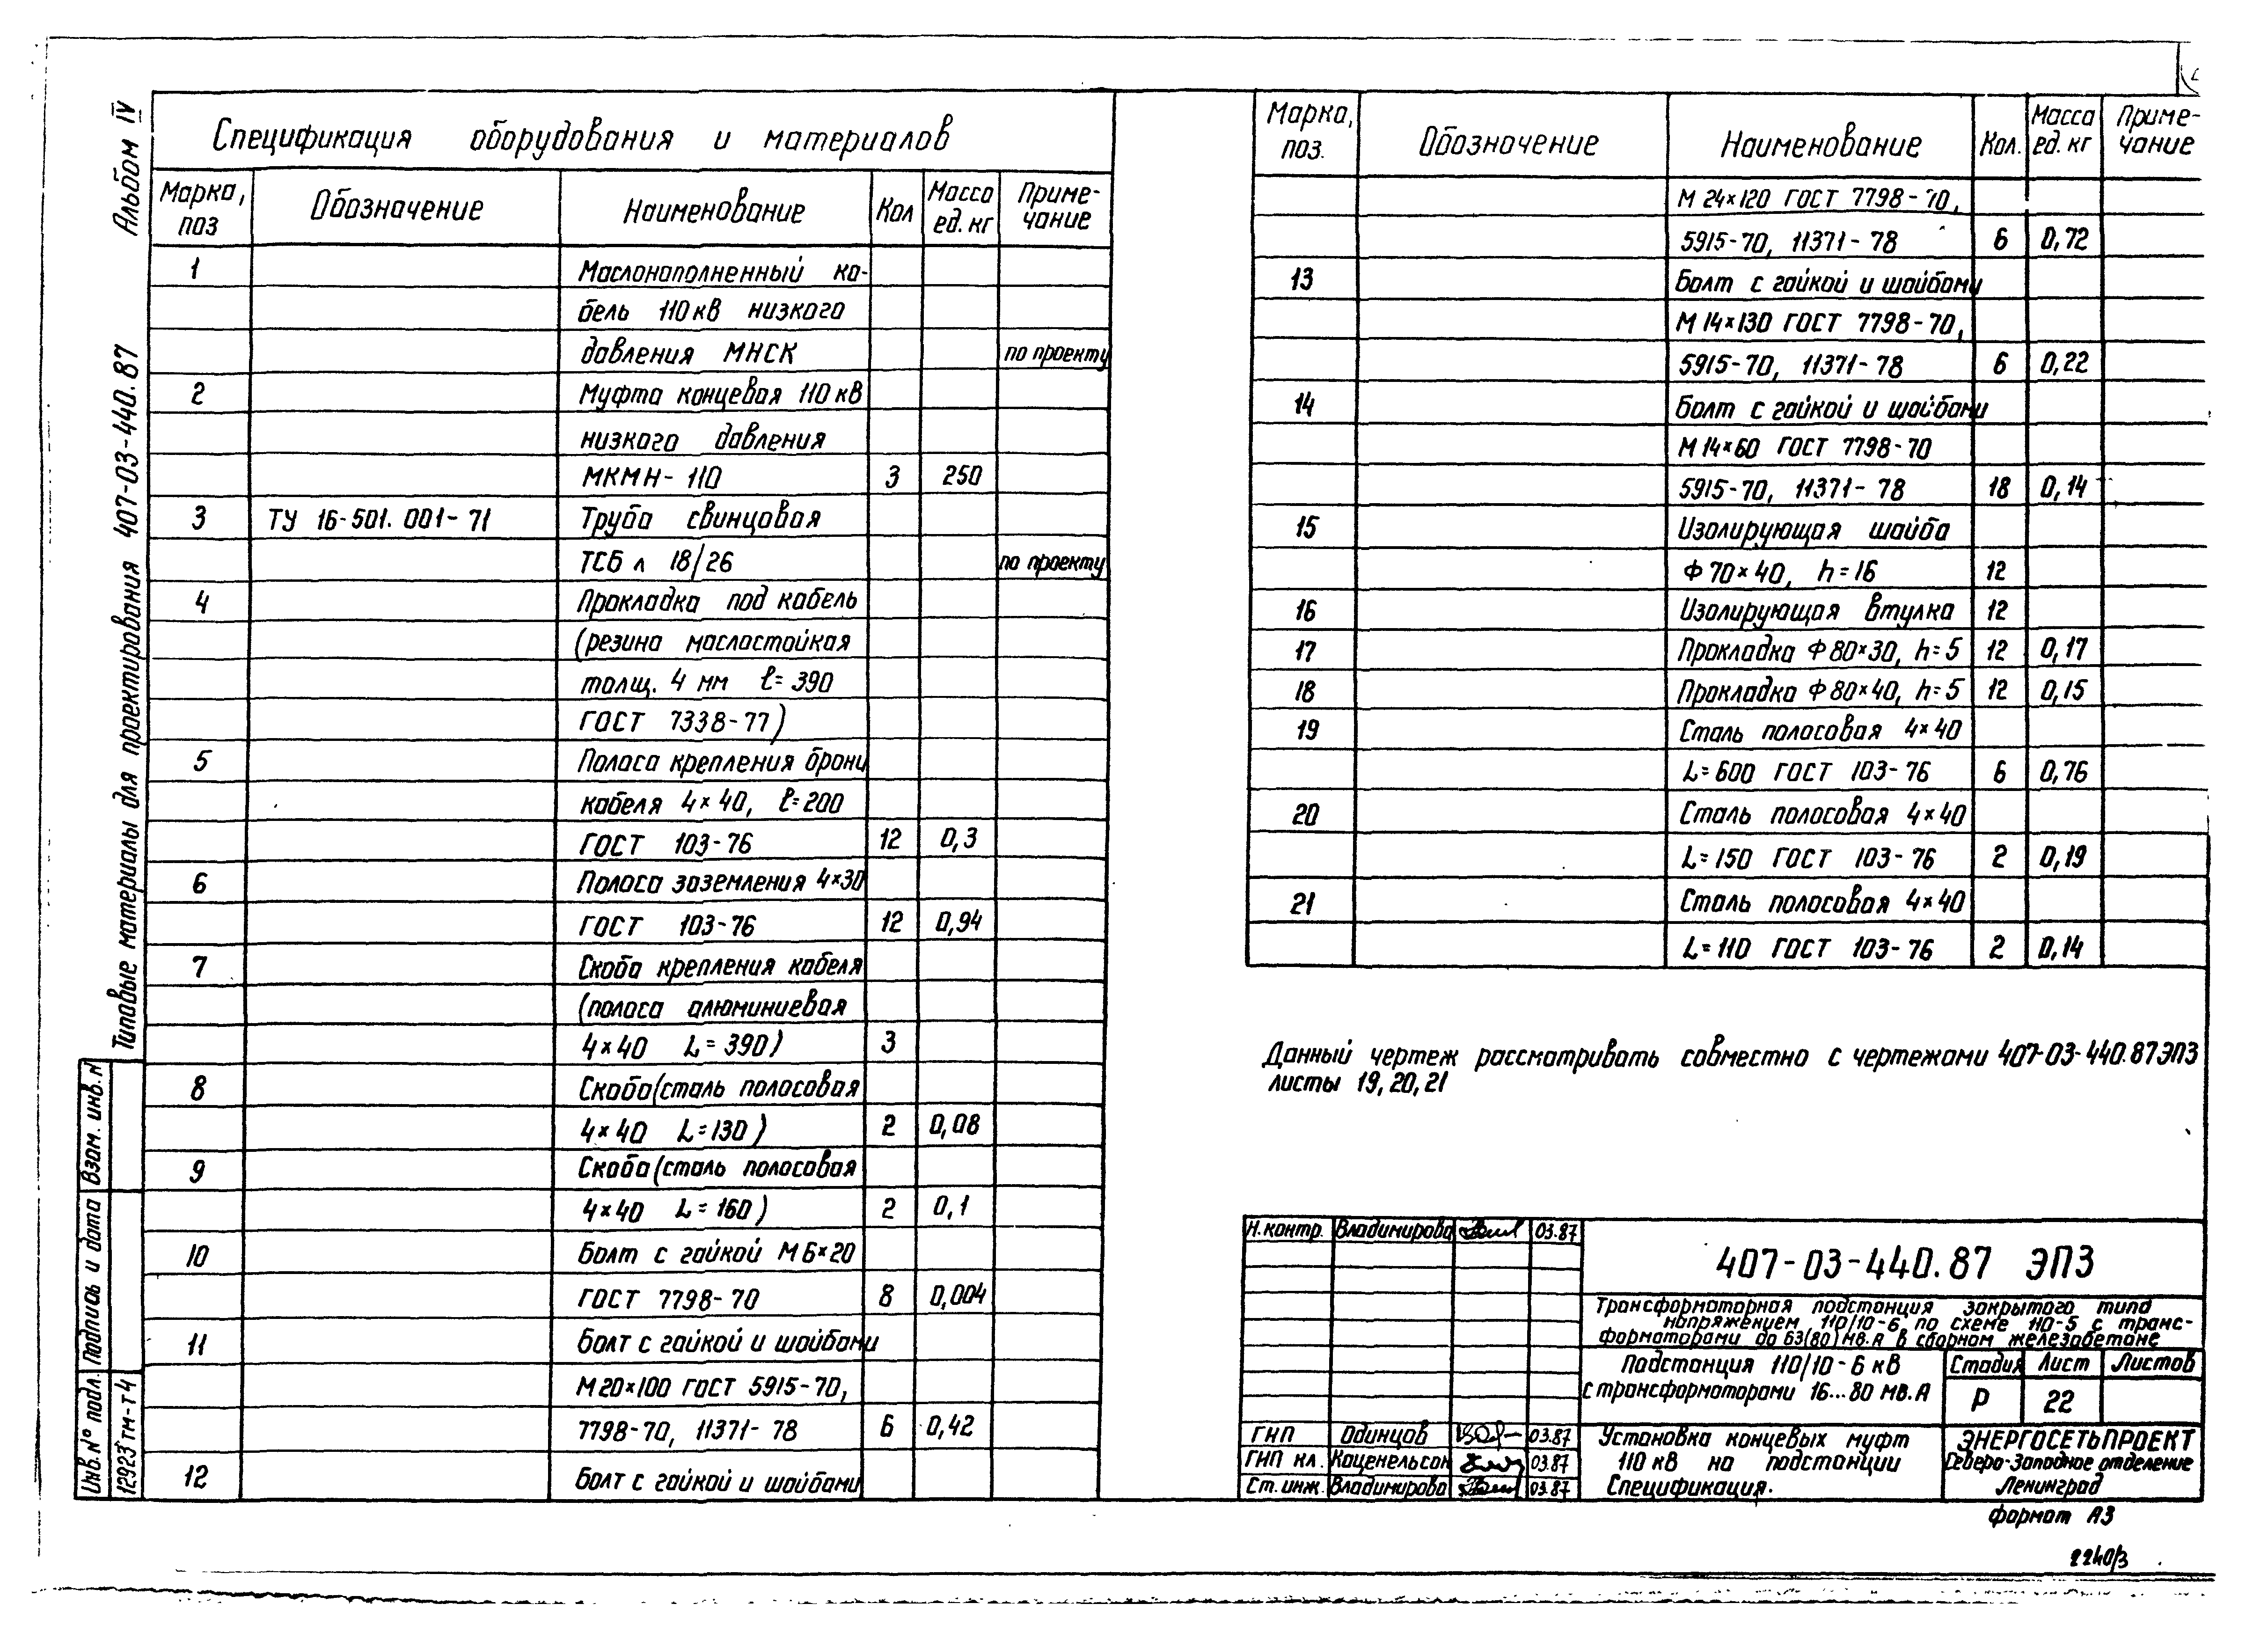 Альбом IV
Типовые материалы для проектирования 407-03-440.87
Взам. инв. N
Подпись и дата
Инв. N° подл.
12923тм-т4
Спецификация оборудования и материалов
Марка, поз Обозначение Наименование Кол Масса ед. кг Приме-чание
1 Маслонаполненный ка-
бель 110 кВ низкого
давления МНСК по проекту
2 Муфта концевая 110 кВ
низкого давления
МКМН-110 3 250
3 ТУ 16-501.001-71 Труба свинцовая
ТСБ л 18/26 по проекту
4 Прокладка под кабель
(резина маслостойкая
толщ. 4 мм ℓ=390
ГОСТ 7338-77)
5 Полоса крепления брони
кабеля 4×40, ℓ=200
ГОСТ 103-76 12 0,3
6 Полоса заземления 4×30
ГОСТ 103-76 12 0,94
7 Скоба крепления кабеля
(полоса алюминиевая
4×40 L=390) 3
8 Скоба (сталь полосовая
4×40 L=130) 2 0,08
9 Скоба (сталь полосовая
4×40 L=160) 2 0,1
10 Болт с гайкой М6×20
ГОСТ 7798-70 8 0,004
11 Болт с гайкой и шайбами
М20×100 ГОСТ 5915-70,
7798-70, 11371-78 6 0,42
12 Болт с гайкой и шайбами
Марка, поз. Обозначение Наименование Кол. Масса ед. кг Приме-чание
М24×120 ГОСТ 7798-70,
5915-70, 11371-78 6 0,72
13 Болт с гайкой и шайбами
М14×130 ГОСТ 7798-70,
5915-70, 11371-78 6 0,22
14 Болт с гайкой и шайбами
М14×60 ГОСТ 7798-70
5915-70, 11371-78 18 0,14
15 Изолирующая шайба
Ф70×40, h=16 12
16 Изолирующая втулка 12
17 Прокладка Ф80×30, h=5 12 0,17
18 Прокладка Ф80×40, h=5 12 0,15
19 Сталь полосовая 4×40
L=600 ГОСТ 103-76 6 0,76
20 Сталь полосовая 4×40
L=150 ГОСТ 103-76 2 0,19
21 Сталь полосовая 4×40
L=110 ГОСТ 103-76 2 0,14
Данный чертеж рассматривать совместно с чертежами 407-03-440.87ЭП3
листы 19, 20, 21
Н. контр. Владимирова 03.87
407-03-440.87 ЭП3
Трансформаторная подстанция закрытого типа
напряжением 110/10-6 по схеме 110-5 с транс-
форматорами до 63(80) МВ.А в сборном железобетоне
Подстанция 110/10-6 кВ
с трансформаторами 16...80 МВ.А
Стадия Лист Листов
Р 22
ГИП Одинцов 03.87
ГИП кл. Каценельсон 03.87
Ст. инж. Владимирова 03.87
Установка концевых муфт
110 кВ на подстанции
Спецификация.
ЭНЕРГОСЕТЬПРОЕКТ
Северо-Западное отделение
Ленинград
формат А3
2240/3